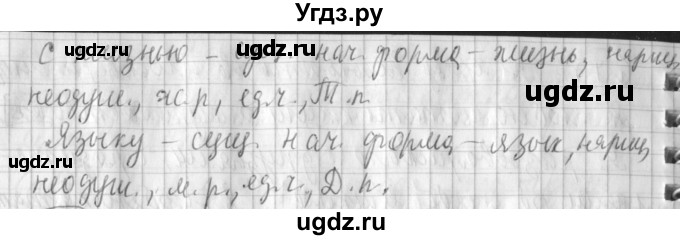 Угдз.ру
с жизнью - сущ. нач. форма - жизнь, нариц,
неодуш., ж.р, ед.ч., Т.п.
ugdz.ru
ugdz.ru
Языку - сущ. нач. форма - язык, нариц,
ugdz.ru
ugdz.ru
неодуш., м.р., ед.ч., Д.п.
ugdz.ru
ugdz.ru